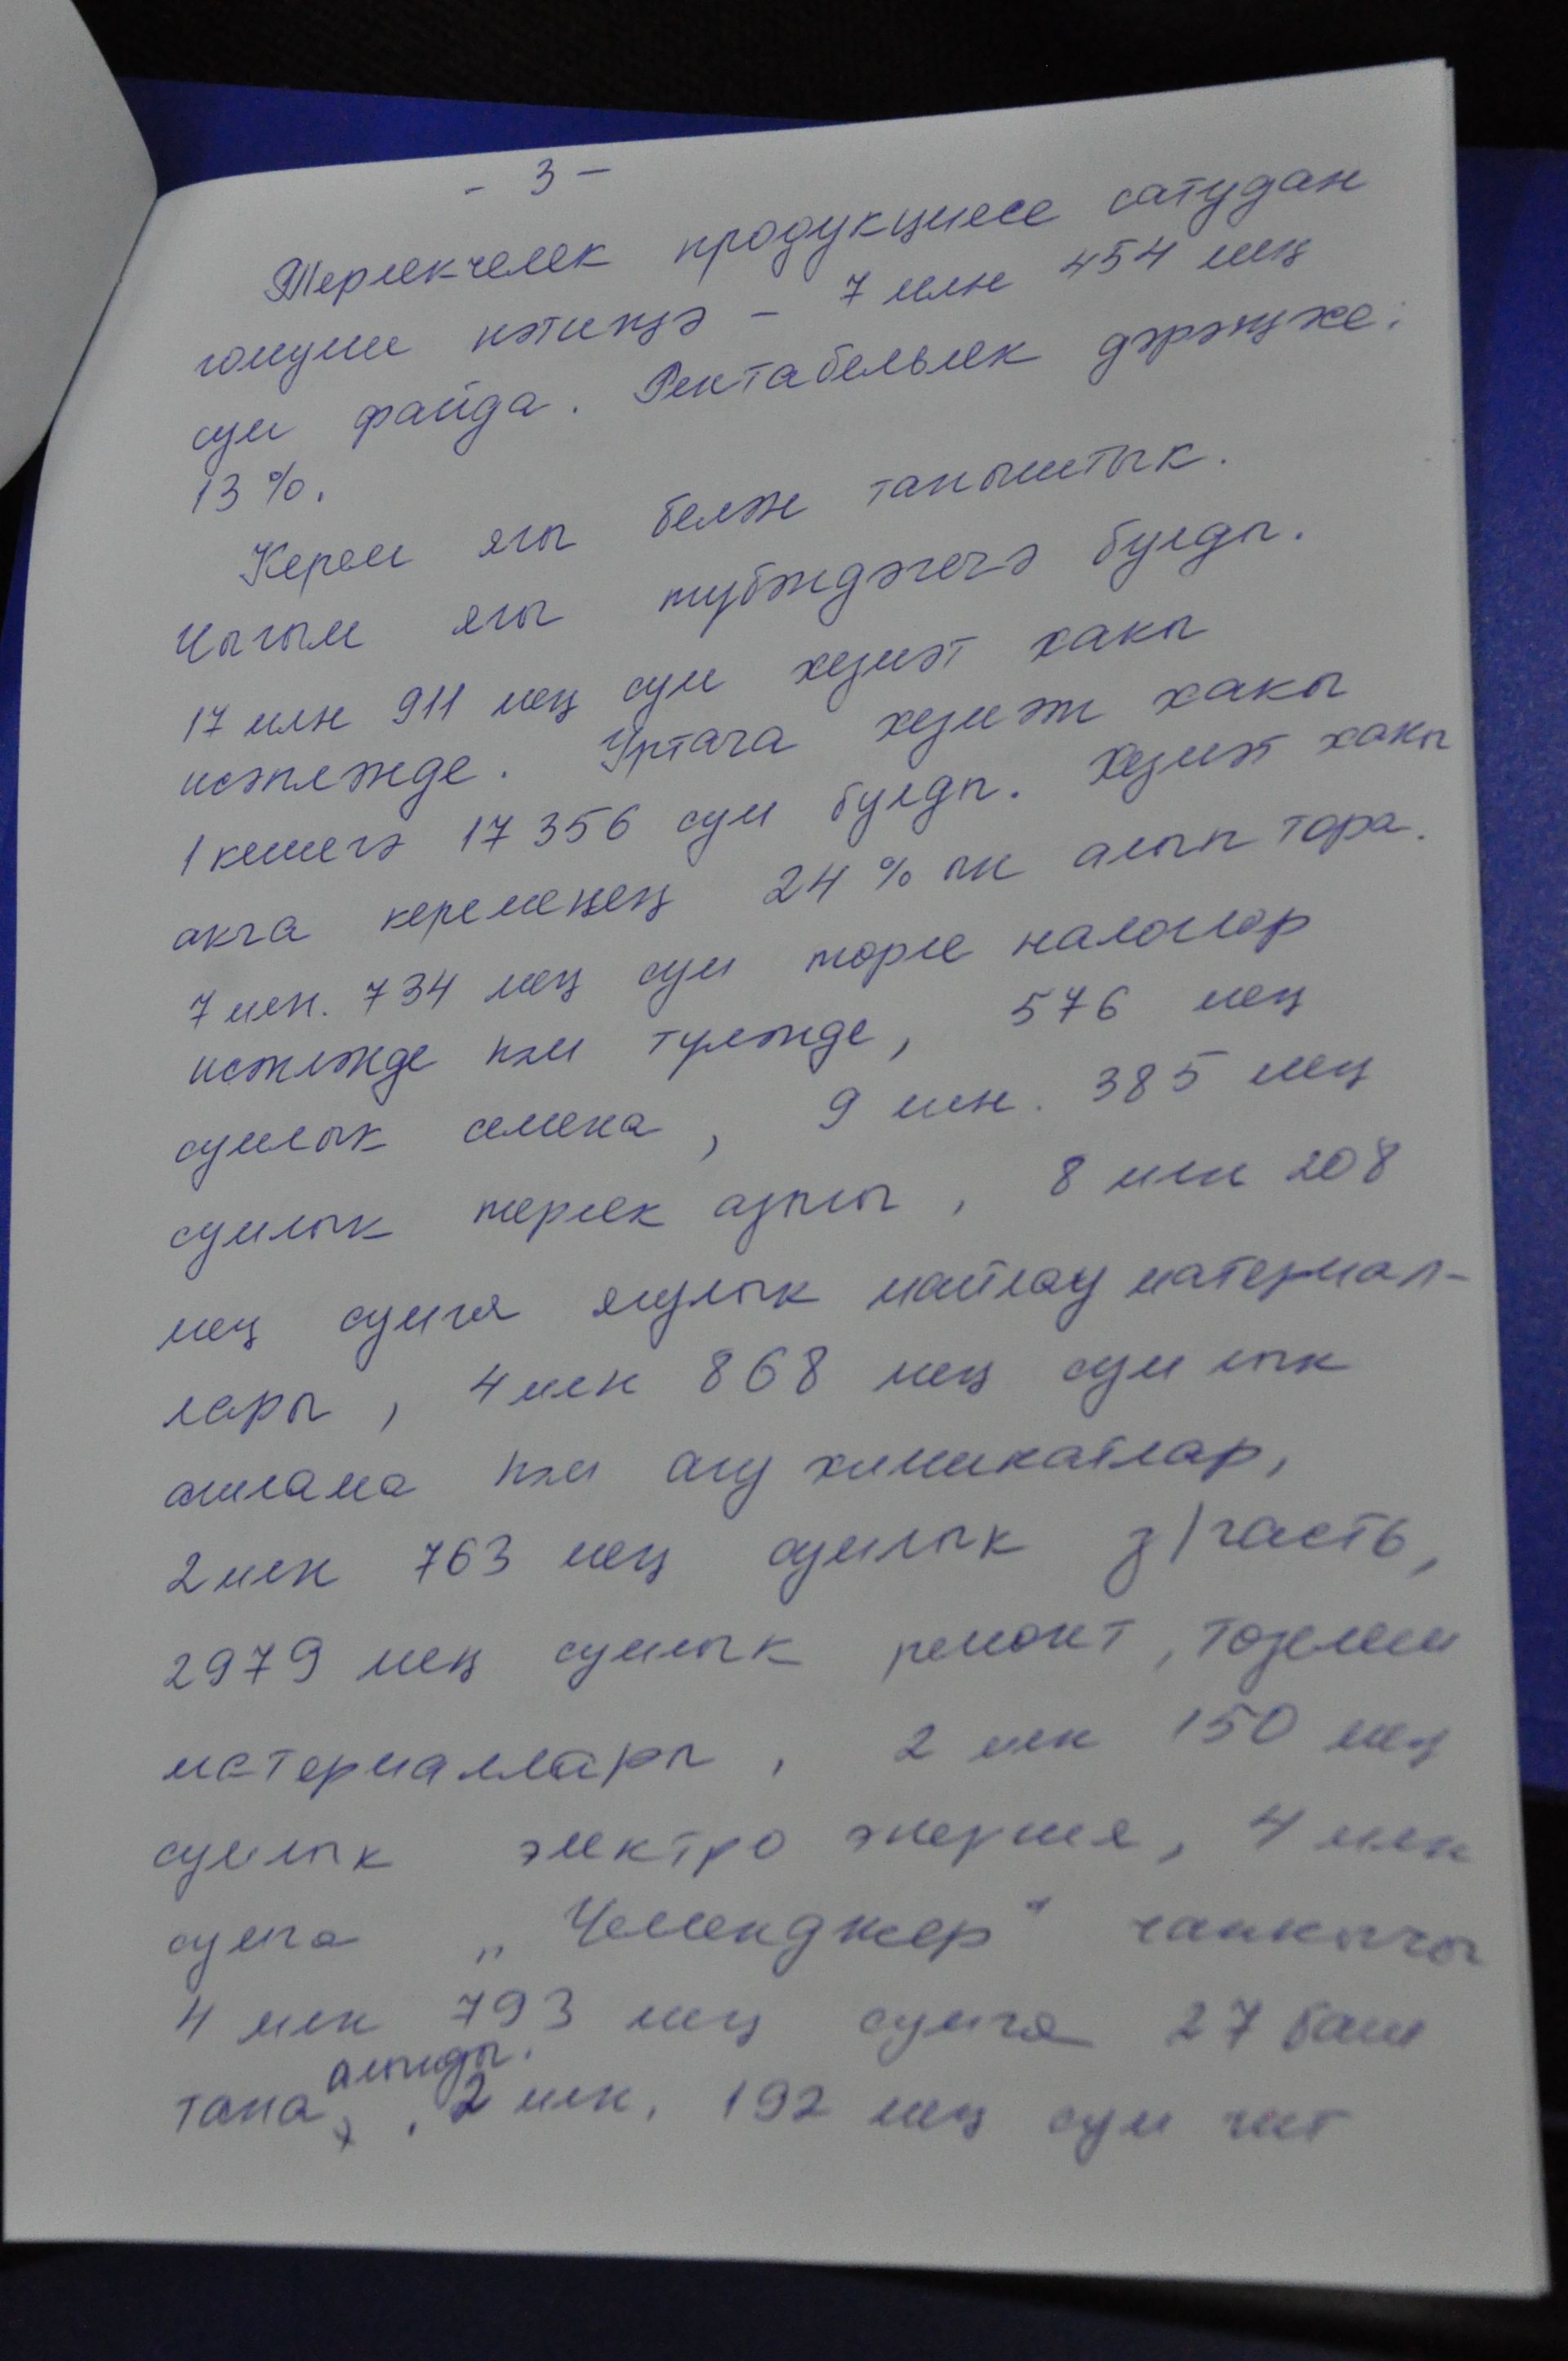 - 3 -
Терлекчелек продукциясе сатудан
гомуми нәтиҗә - 7 млн 454 мең
сум файда. Рентабельлек дәрәҗәсе:
13%.
Керем ягы белән таныштык.
Чыгым ягы түбәндәгечә булды.
17 млн 911 мең сум хезмәт хакы
исәпләнде. Уртача хезмәт хакы
1 кешегә 17356 сум булды. Хезмәт хакы
акча кеременең 24% ын алып тора.
7 млн. 734 мең сум төрле налоглар
исәпләнде һәм түләнде, 576 мең
сумлык семена, 9 млн. 385 мең
сумлык терлек азыгы, 8 млн 208
мең сумга ягулык майлау материал-
лары, 4 млн 868 мең сумлык
ашлама һәм агу химикатлар,
2 млн 763 мең сумлык з/часть,
2979 мең сумлык ремонт, төзелеш
материаллары, 2 млн 150 мең
сумлык электро энергия, 4 млн
сумга „Челенджер" чапкычы
4 млн 793 мең сумга 27 баш
тана алынды. 2 млн. 192 мең сум чит